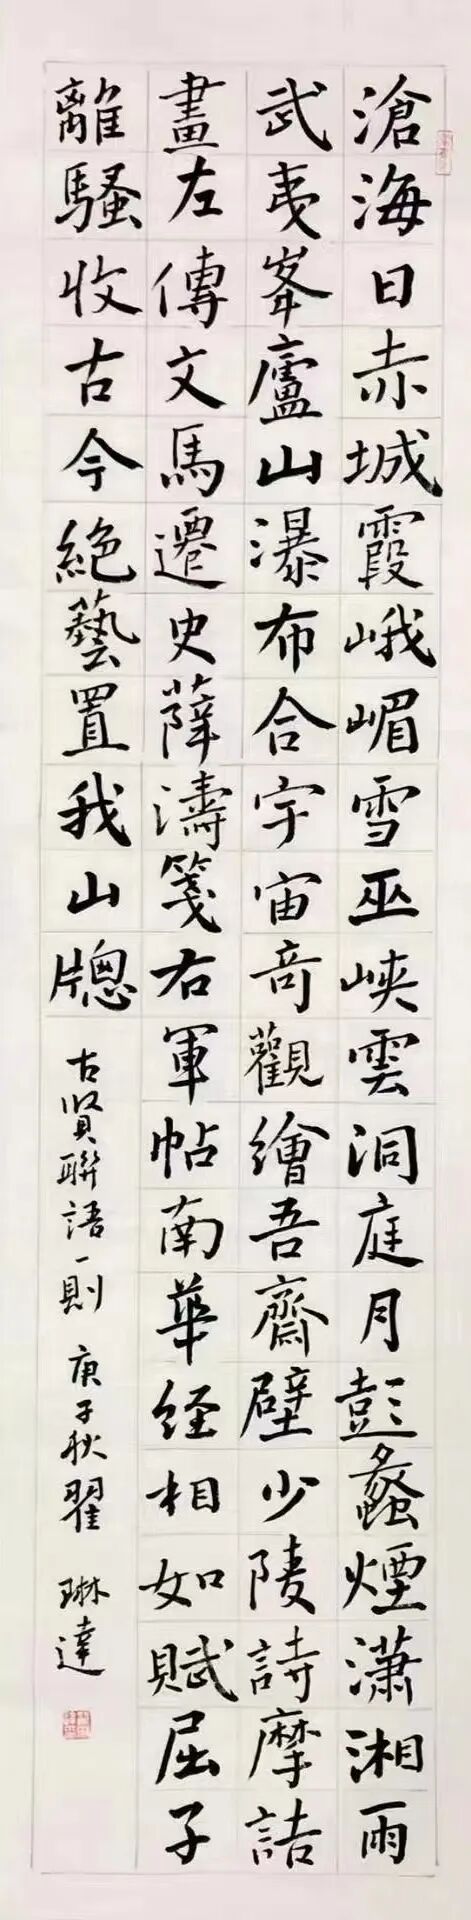 滄海日赤城霞峨嵋雪巫峽雲洞庭月彭蠡煙潇湘雨
武夷峯廬山瀑布合宇宙奇觀繪吾齋壁少陵詩摩詰
畫左傳文馬遷史薛濤箋右軍帖南華经相如賦屈子
離騷收古今絶藝置我山牕
古賢聯語一則 庚子秋翟 琳達